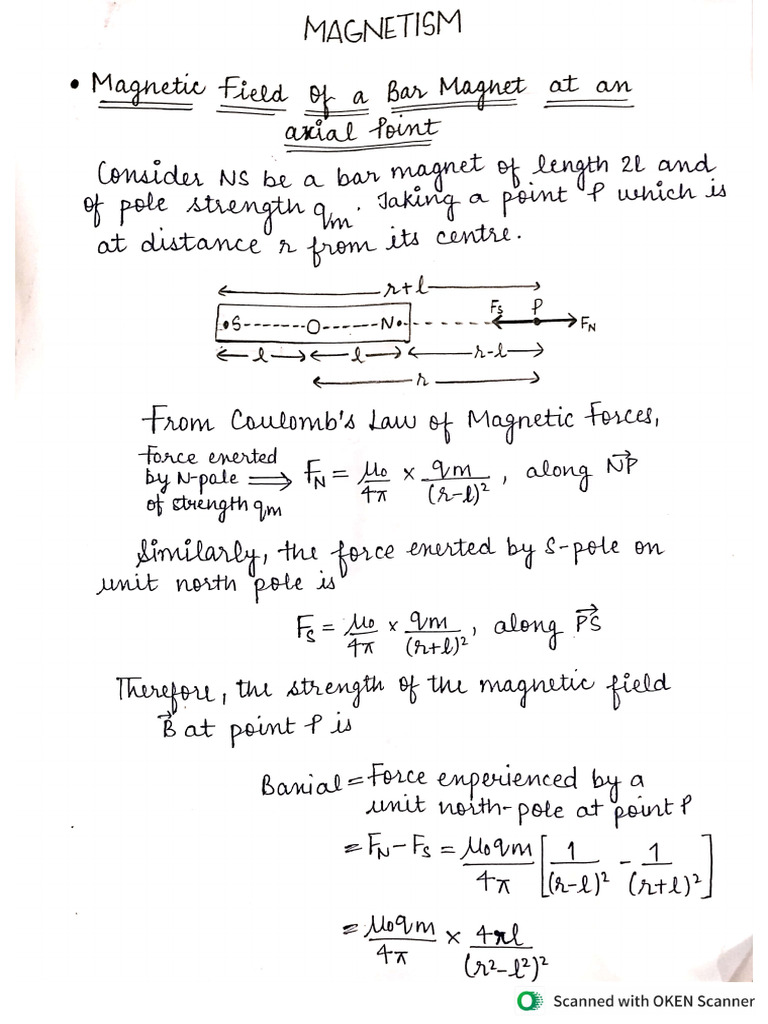 MAGNETISM
• Magnetic Field of a Bar Magnet at an
axial Point
Consider NS be a bar magnet of length 2l and
of pole strength qm. Taking a point P which is
at distance r from its centre.
r+l
•S-------O------N•------ Fs P FN
l l r-l
r
From Coulomb's Law of Magnetic Forces,
Force enerted
by N-pole ⟹ FN = μ0/4π × qm/(r-l)², along NP→
of strength qm
Similarly, the force enerted by S-pole on
unit north pole is
Fs = μ0/4π × qm/(r+l)², along PS→
Therefore, the strength of the magnetic field
B→ at point P is
Banial = Force enperienced by a
unit north-pole at point P
= FN - Fs = μ0qm/4π [1/(r-l)² - 1/(r+l)²]
= μ0qm/4π × 4rl/(r²-l²)²
Scanned with OKEN Scanner